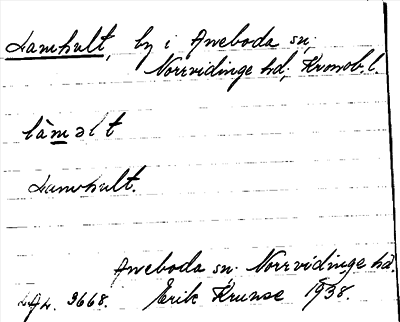 Lamhult, by i Aneboda sn,
Norrvidinge hd, Kronob. l.
làməlt
Lamhult.
Aneboda sn. Norrvidinge hd.
3668. Erik Kruuse 1938.